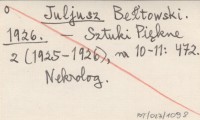 o Juljusz Bełtowski.
1926. — Sztuki Piękne
2 (1925-1926), no 10-11: 472.
Nekrolog.